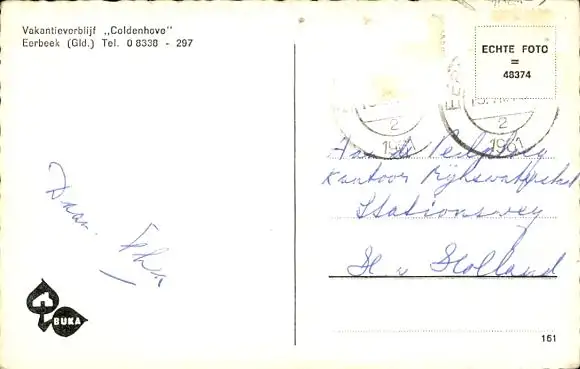 Vakantieverblijf „Coldenhove"
Eerbeek (Gld.) Tel. 0 8338 - 297
ECHTE FOTO
=
48374
2
1961
2
1961
Aan de
Kantoor Rijkswaterstaat
Stationsweg
H v Holland
Daan.
BUKA
161